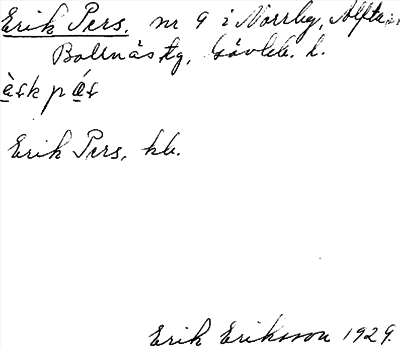 Erik Pers, nr 9 i Norrby, Alfta,
Bollnäs tg, Gävleb. l.
èsk pás
Erik Pers, kb.
Erik Eriksson 1929.